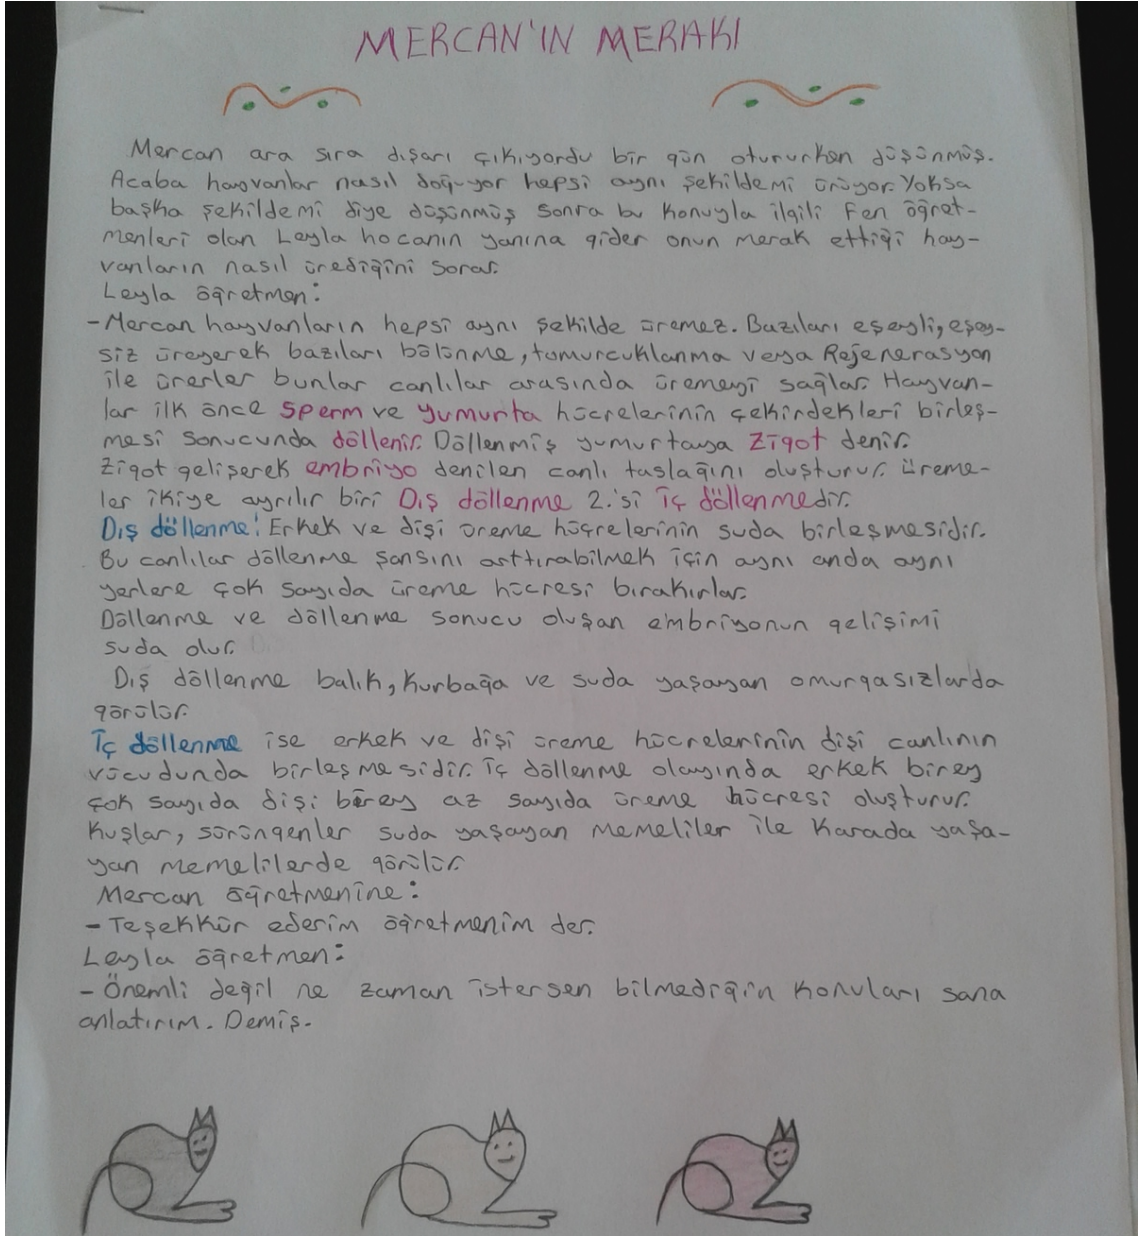 MERCAN'IN MERAKI
Mercan ara sıra dışarı çıkıyordu bir gün otururken düşünmüş.
Acaba hayvanlar nasıl doğuyor hepsi aynı şekildemi ürüyor. Yoksa
başka şekildemi diye düşünmüş sonra bu konuyla ilgili Fen öğret-
menleri olan Leyla hocanın yanına gider onun merak ettiği hay-
vanların nasıl ürediğini sorar.
Leyla öğretmen:
-Mercan hayvanların hepsi aynı şekilde üremez. Bazıları eşeyli, eşey-
siz üreyerek bazıları bölünme, tomurcuklanma veya Rejenerasyon
ile ürerler bunlar canlılar arasında üremeyi sağlar. Hayvan-
lar ilk önce sperm ve yumurta hücrelerinin çekirdekleri birleş-
mesi sonucunda döllenir. Döllenmiş yumurtaya Zigot denir.
Zigot gelişerek embriyo denilen canlı taslağını oluşturur. üreme-
ler ikiye ayrılır biri Dış döllenme 2.'si İç döllenmedir.
Dış döllenme: Erkek ve dişi üreme hüçrelerinin suda birleşmesidir.
Bu canlılar döllenme şansını arttırabilmek için aynı anda aynı
yerlere çok sayıda üreme hücresi bırakırlar.
Döllenme ve döllenme sonucu oluşan embriyonun gelişimi
suda olur.
Dış döllenme balık, kurbağa ve suda yaşayan omurgasızlarda
görülür.
İç döllenme ise erkek ve dişi üreme hücrelerinin dişi canlının
vücudunda birleşmesidir. İç döllenme olayında erkek birey
çok sayıda dişi birey az sayıda üreme hücresi oluşturur.
Kuşlar, sürüngenler suda yaşayan memeliler ile karada yaşa-
yan memelilerde görülür.
Mercan öğretmenine:
- Teşekkür ederim öğretmenim der.
Leyla öğretmen:
- Önemli değil ne zaman istersen bilmediğin konuları sana
anlatırım. Demiş.